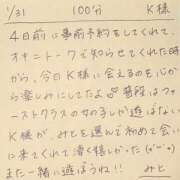 1/31 100分 K様
4日前に事前予約をしてくれて、
オキニトークで知らせてくれた時
から、今日K様に会えるのを心か
ら楽しみにしてたよ♡普段はフ
ァーストクラスの女の子しか遊ばない
K様が、みとを選んで初めて会い
に来てくれて凄く嬉しかった(о´∀`о)
また一緒に遊ぼうね!! みと